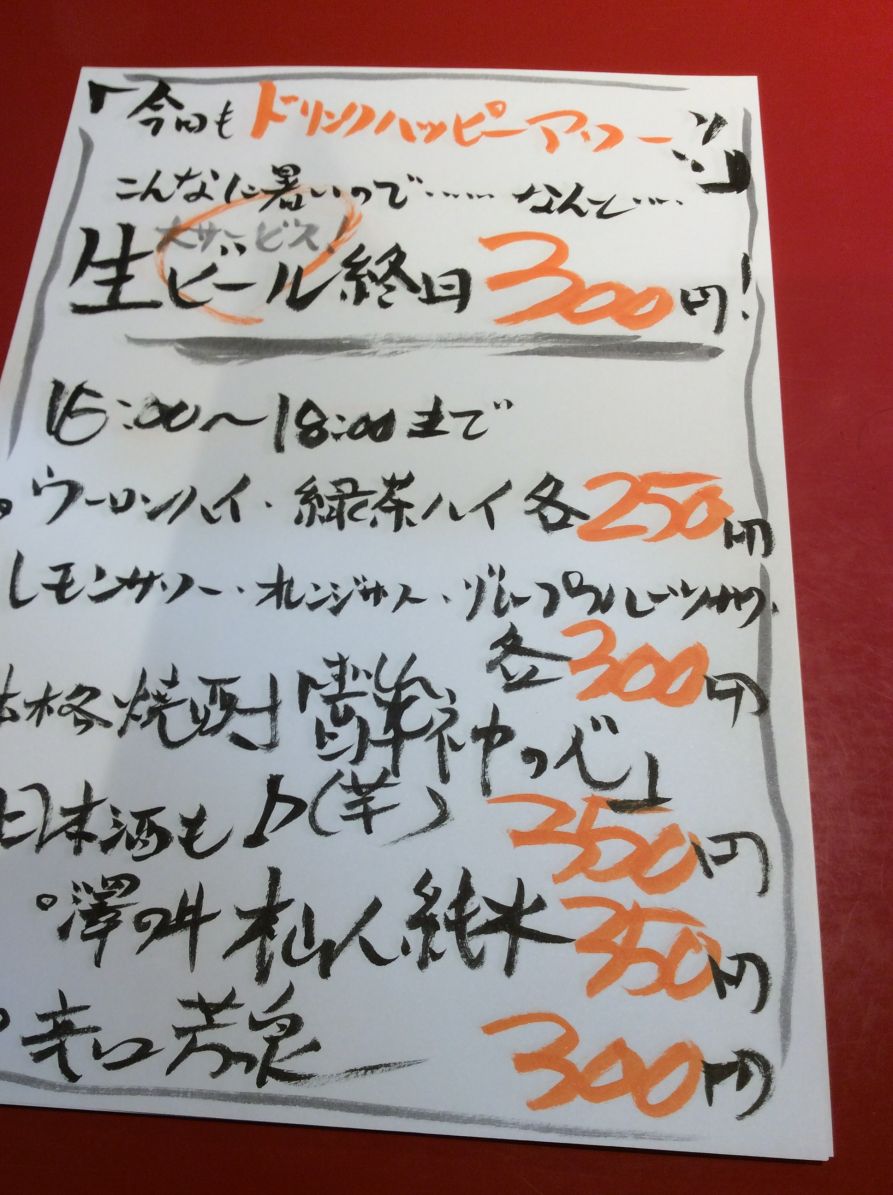 「今日も ドリンクハッピーアワー!!」
こんなに暑いので…… なんと…
大サービス!
生ビール終日 300円!
15:00〜18:00まで
ウーロンハイ・緑茶ハイ 各250円
レモンサワー・オレンジサワー・グレープフルーツサワー
各300円
本格焼酎「
(芋) 250円
日本酒も♪
澤の井 杣人 純米 350円
辛口 芳泉 300円